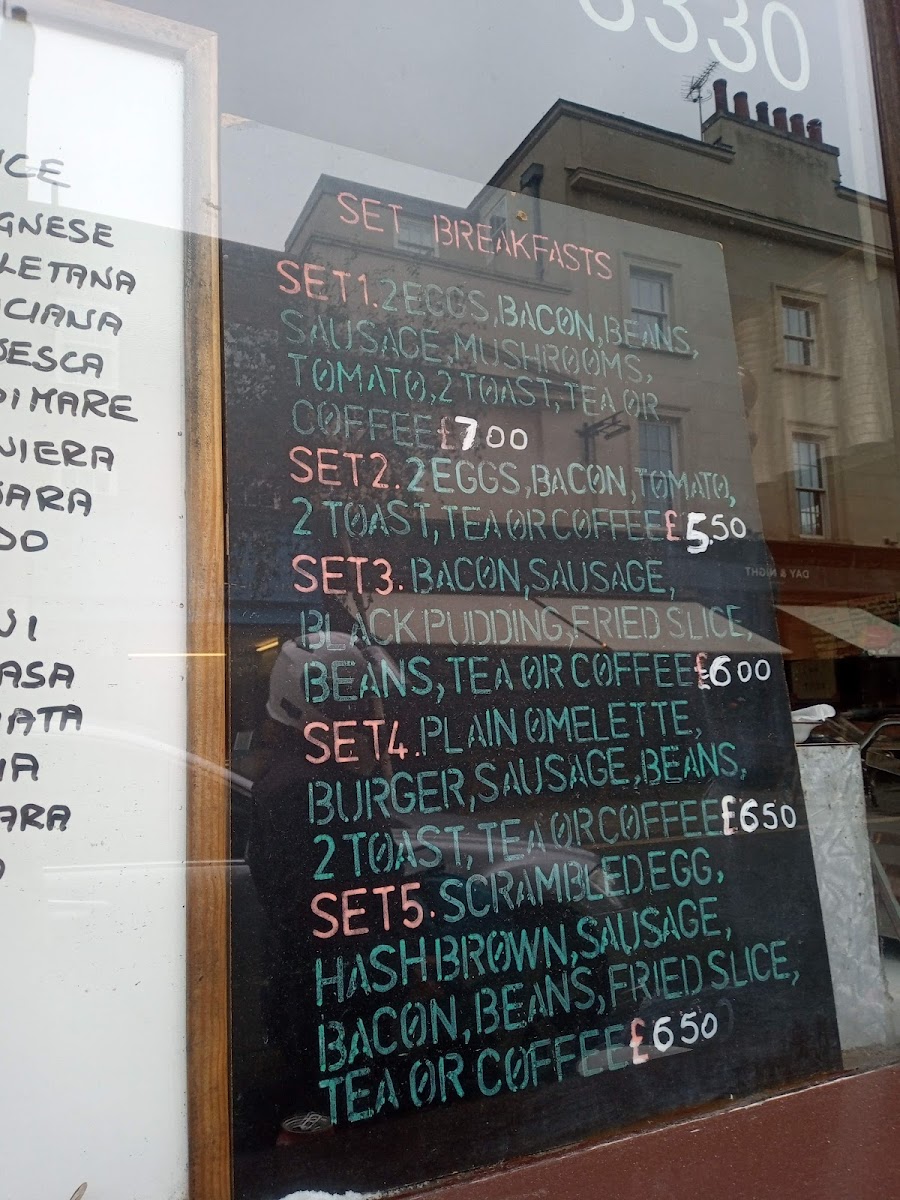 3330
SET BREAKFASTS
SET1. 2 EGGS, BACON, BEANS,
SAUSAGE, MUSHROOMS,
TOMATO, 2 TOAST, TEA OR
COFFEE £7.00
SET2. 2 EGGS, BACON, TOMATO,
2 TOAST, TEA OR COFFEE £5.50
SET3. BACON, SAUSAGE,
BLACK PUDDING, FRIED SLICE,
BEANS, TEA OR COFFEE £6.00
SET4. PLAIN OMELETTE,
BURGER, SAUSAGE, BEANS,
2 TOAST, TEA OR COFFEE £6.50
SET5. SCRAMBLED EGG,
HASH BROWN, SAUSAGE,
BACON, BEANS, FRIED SLICE,
TEA OR COFFEE £6.50
GNESE
LETANA
CIANA
ESCA
DI MARE
NIERA
ARA
DO
ASA
ATA
IA
ARA
DAY & NIGHT